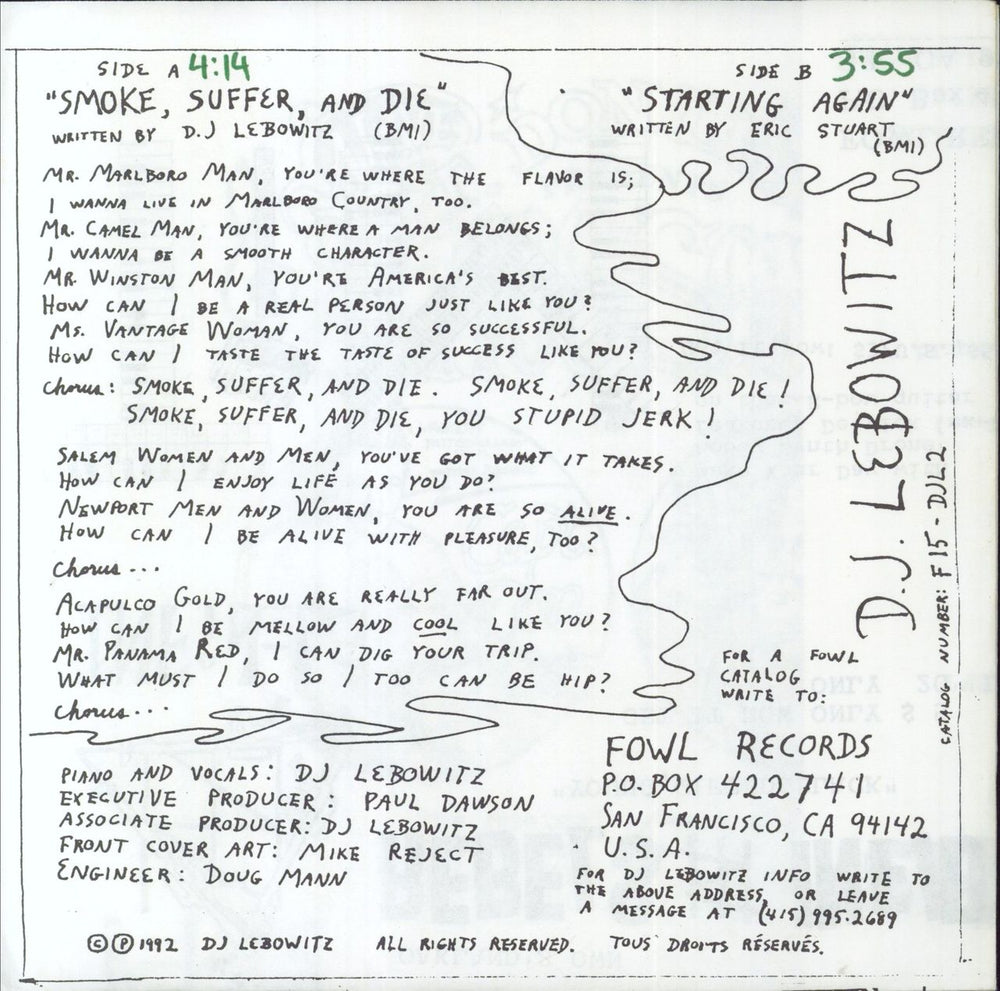 SIDE A 4:14
"SMOKE, SUFFER, AND DIE"
WRITTEN BY D.J LEBOWITZ (BMI)
MR. MARLBORO MAN, YOU'RE WHERE THE FLAVOR IS;
I WANNA LIVE IN MARLBORO COUNTRY, TOO.
MR. CAMEL MAN, YOU'RE WHERE A MAN BELONGS;
I WANNA BE A SMOOTH CHARACTER.
MR. WINSTON MAN, YOU'RE AMERICA'S BEST.
HOW CAN I BE A REAL PERSON JUST LIKE YOU?
MS. VANTAGE WOMAN, YOU ARE SO SUCCESSFUL.
HOW CAN I TASTE THE TASTE OF SUCCESS LIKE YOU?
Chorus: SMOKE, SUFFER, AND DIE. SMOKE, SUFFER, AND DIE!
SMOKE, SUFFER, AND DIE, YOU STUPID JERK!
SALEM WOMEN AND MEN, YOU'VE GOT WHAT IT TAKES.
HOW CAN I ENJOY LIFE AS YOU DO?
NEWPORT MEN AND WOMEN, YOU ARE SO ALIVE.
HOW CAN I BE ALIVE WITH PLEASURE, TOO?
Chorus...
ACAPULCO GOLD, YOU ARE REALLY FAR OUT.
HOW CAN I BE MELLOW AND COOL LIKE YOU?
MR. PANAMA RED, I CAN DIG YOUR TRIP.
WHAT MUST I DO SO I TOO CAN BE HIP?
Chorus...
PIANO AND VOCALS: DJ LEBOWITZ
EXECUTIVE PRODUCER: PAUL DAWSON
ASSOCIATE PRODUCER: DJ LEBOWITZ
FRONT COVER ART: MIKE REJECT
ENGINEER: DOUG MANN
SIDE B 3:55
"STARTING AGAIN"
WRITTEN BY ERIC STUART
(BMI)
D.J. LEBOWITZ
CATALOG NUMBER: F15-DJL2
FOR A FOWL
CATALOG
WRITE TO:
FOWL RECORDS
P.O. BOX 422741
SAN FRANCISCO, CA 94142
U.S.A.
FOR DJ LEBOWITZ INFO WRITE TO
THE ABOVE ADDRESS, OR LEAVE
A MESSAGE AT (415) 995-2689
© ℗ 1992 DJ LEBOWITZ ALL RIGHTS RESERVED. TOUS DROITS RÉSERVÉS.